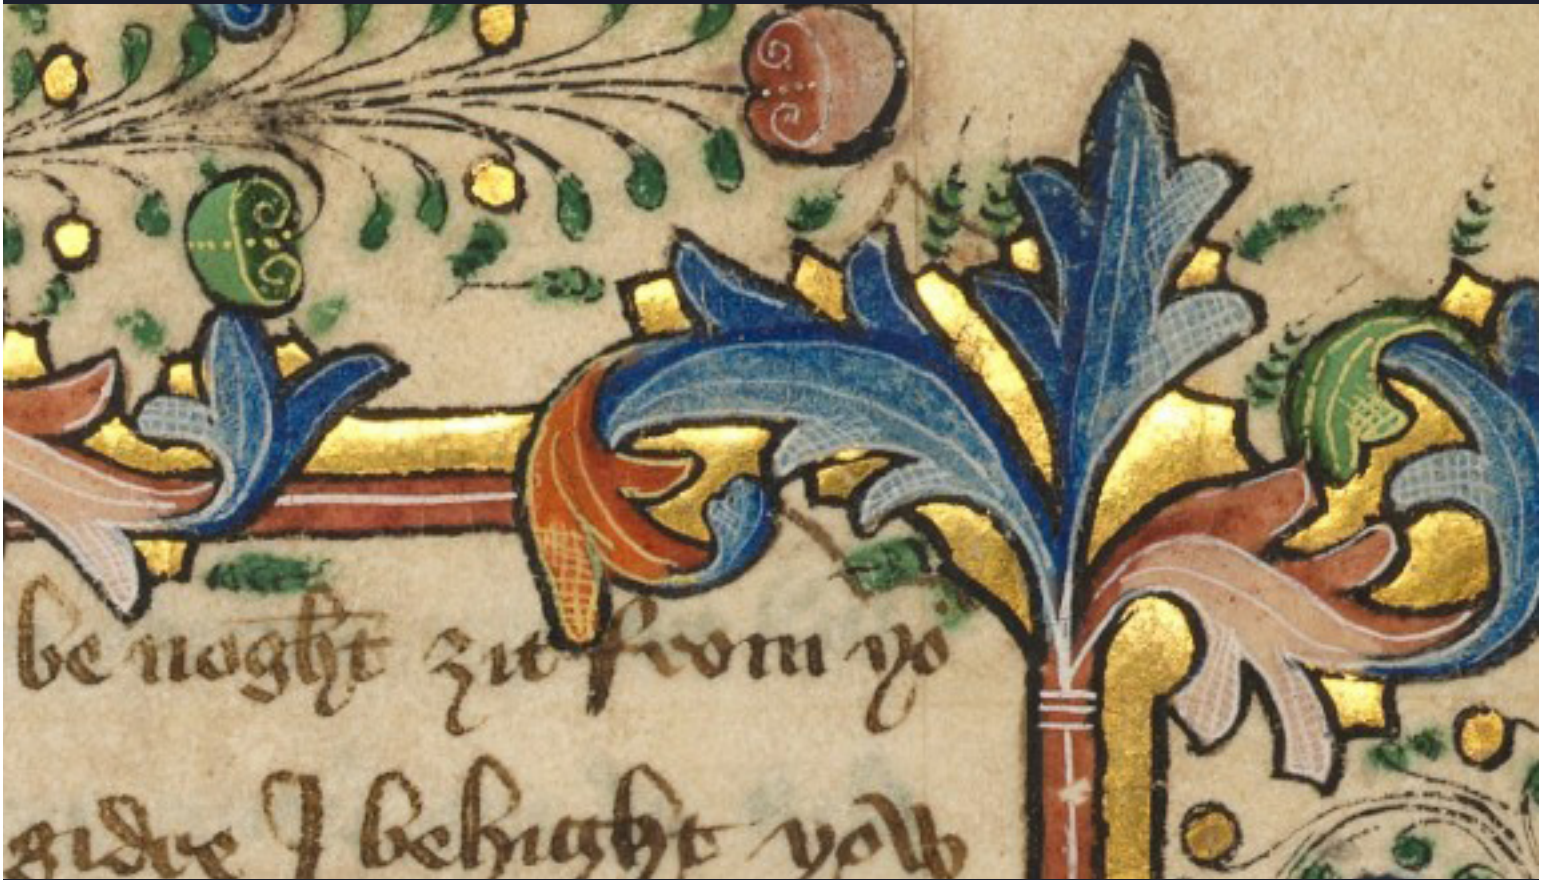 be noght zit from yo
gidre I behight yow